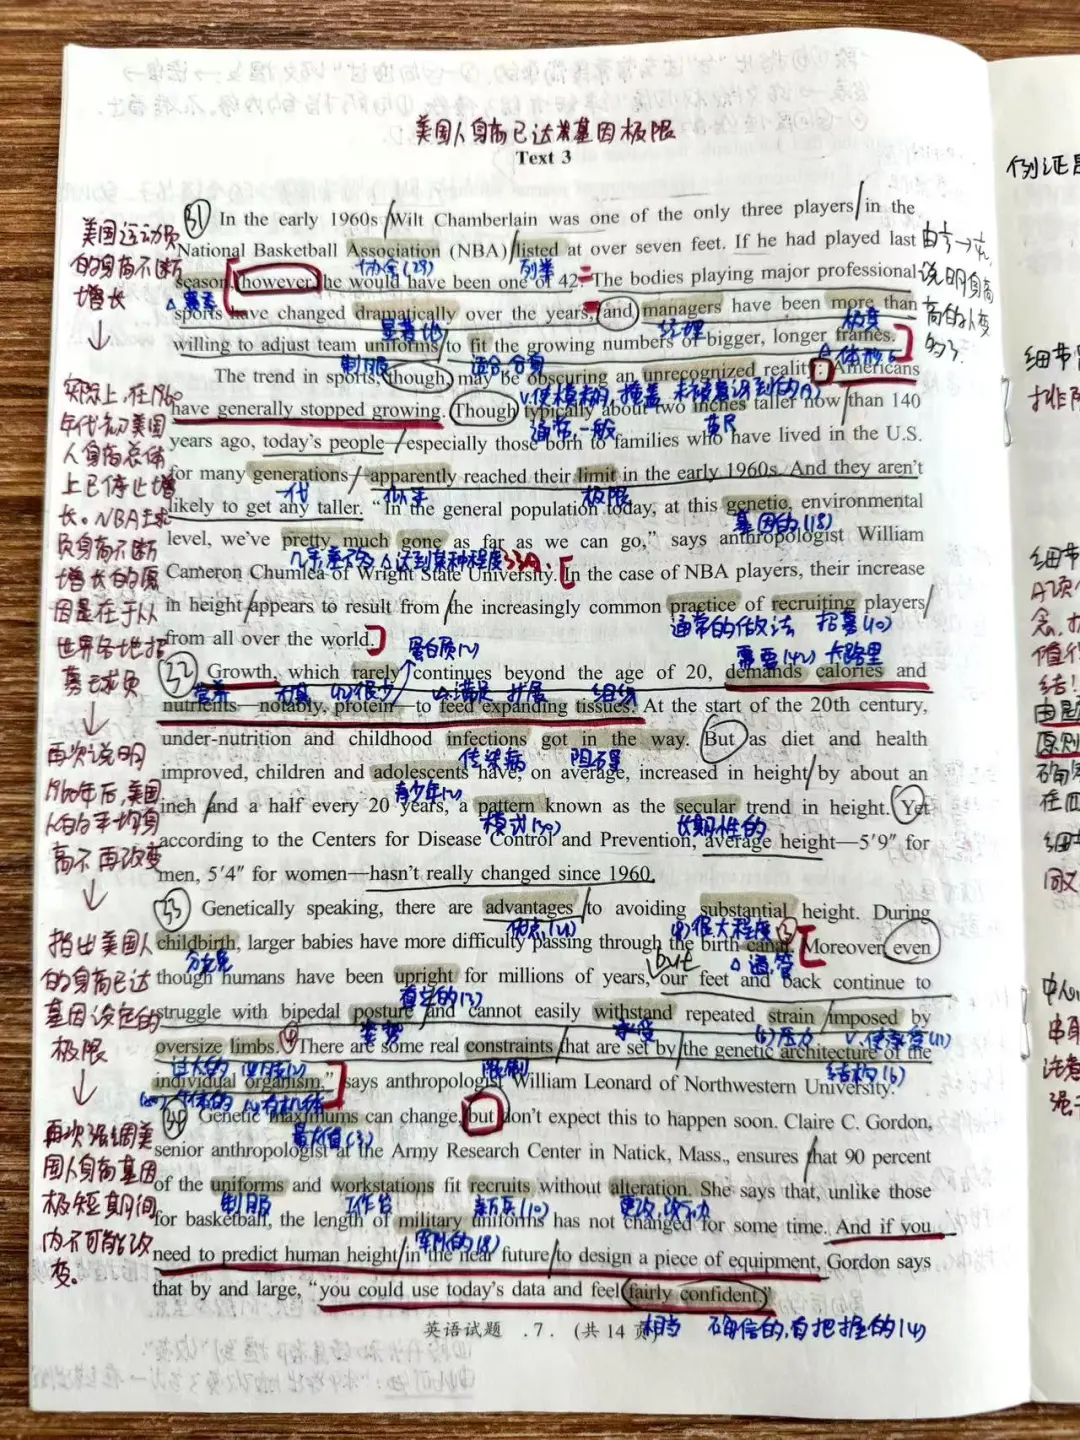 美国人身高已达基因极限
Text 3
31 In the early 1960s Wilt Chamberlain was one of the only three players in the
National Basketball Association (NBA) listed at over seven feet. If he had played last
协会(29) 列举
season, however, he would have been one of 42. The bodies playing major professional
sports have changed dramatically over the years, and managers have been more than
显著地 经理 极其
willing to adjust team uniforms to fit the growing numbers of bigger, longer frames.
制服 适合,合身 体形
The trend in sports, though, may be obscuring an unrecognized reality: Americans
v.使模糊,掩盖 未被意识到的
have generally stopped growing. Though typically about two inches taller now than 140
通常,一般 英尺
years ago, today's people—especially those born to families who have lived in the U.S.
for many generations—apparently reached their limit in the early 1960s. And they aren't
一代 似乎 极限
likely to get any taller. "In the general population today, at this genetic, environmental
基因的(18)
level, we've pretty much gone as far as we can go," says anthropologist William
几乎,差不多 达到某种程度
Cameron Chumlea of Wright State University. In the case of NBA players, their increase
in height appears to result from the increasingly common practice of recruiting players
通常的做法 招募(10)
from all over the world.
蛋白质
32 Growth, which rarely continues beyond the age of 20, demands calories and
很少 需要(42) 卡路里
nutrients—notably, protein—to feed expanding tissues. At the start of the 20th century,
营养 尤其 满足 扩展 组织
under-nutrition and childhood infections got in the way. But as diet and health
传染病 阻碍
improved, children and adolescents have, on average, increased in height by about an
青少年
inch and a half every 20 years, a pattern known as the secular trend in height. Yet
模式(30) 长期性的
according to the Centers for Disease Control and Prevention, average height—5′9″ for
men, 5′4″ for women—hasn't really changed since 1960.
33 Genetically speaking, there are advantages to avoiding substantial height. During
很大程度
childbirth, larger babies have more difficulty passing through the birth canal. Moreover, even
分娩 通,管
though humans have been upright for millions of years, our feet and back continue to
but
直立的(3)
struggle with bipedal posture and cannot easily withstand repeated strain imposed by
姿势 承受 压力 v.使承受(11)
oversize limbs. "There are some real constraints that are set by the genetic architecture of the
过大的 限制 结构(6)
individual organism," says anthropologist William Leonard of Northwestern University.
个体的 有机体
34 Genetic maximums can change, but don't expect this to happen soon. Claire C. Gordon,
最大值(3)
senior anthropologist at the Army Research Center in Natick, Mass., ensures that 90 percent
of the uniforms and workstations fit recruits without alteration. She says that, unlike those
制服 工作台 新兵(10) 更改,改动
for basketball, the length of military uniforms has not changed for some time. And if you
军队的(8)
need to predict human height in the near future to design a piece of equipment, Gordon says
that by and large, "you could use today's data and feel fairly confident."
相当 确信的,有把握的(4)
英语试题 .7. (共 14 页)
美国运动员
的身高不断
增长
↓
实际上,在1960
年代初美国
人身高总体
上已停止增
长。NBA球
员身高不断
增长的原
因是在于从
世界各地招
募球员
↓
再次说明
1960年后,美国
人的平均身
高不再改变
↓
指出美国人
的身高已达
基因设定的
极限
↓
再次强调美
国人身高基因
极短期间
内不可能改
变。
说明身高
高的人变
例证
细节
排除
细节